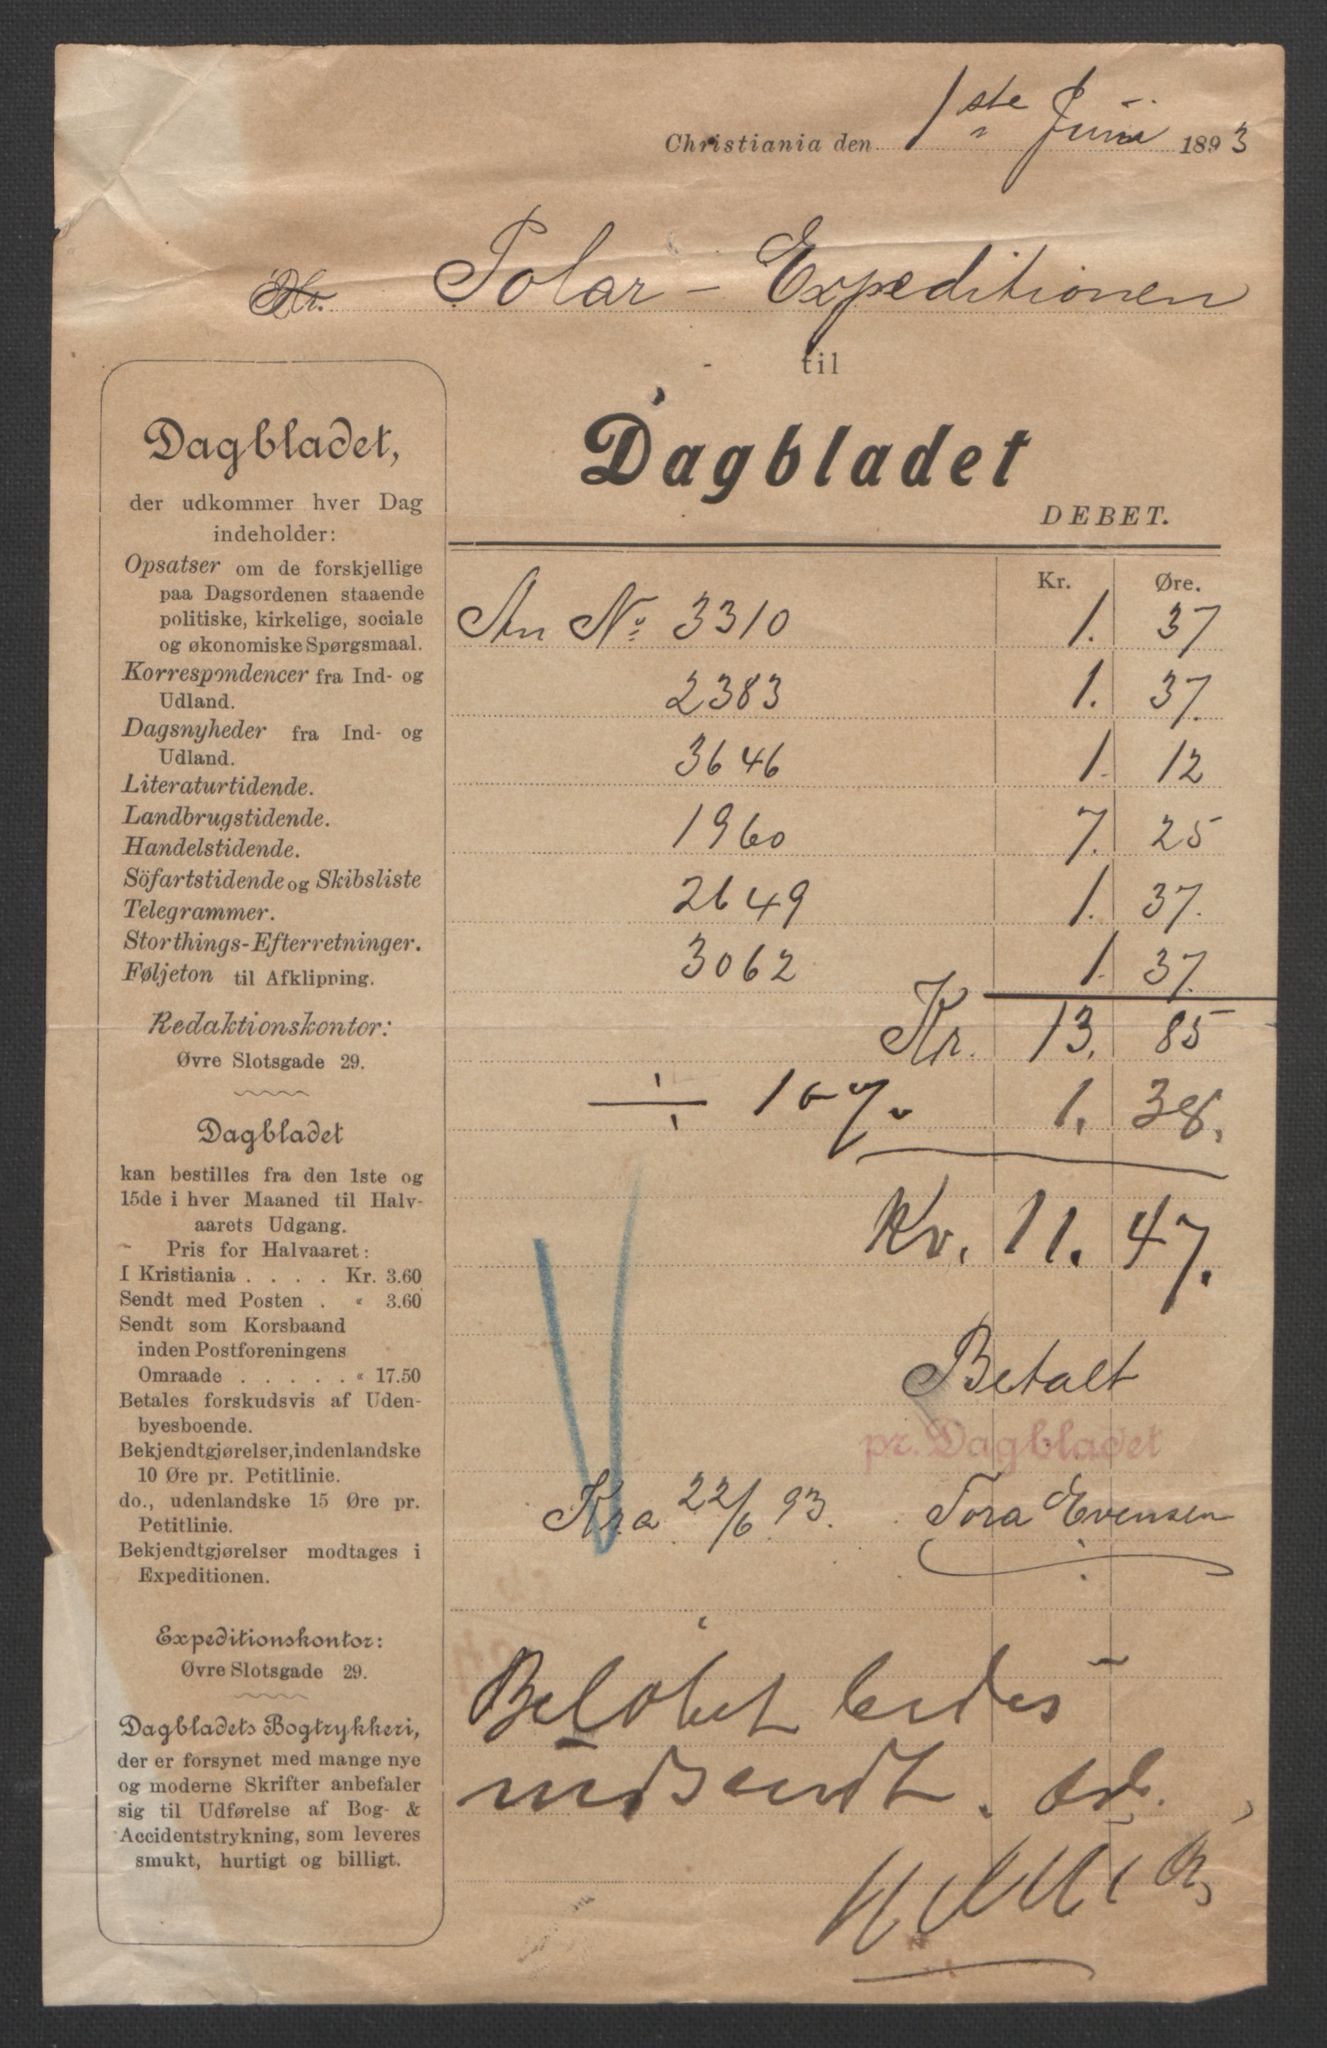 Christiania den 1ste Juni 1893
Hr. Polar-Expeditionen
til
Dagbladet
DEBET.
Dagbladet,
der udkommer hver Dag
indeholder:
Opsatser om de forskjellige
paa Dagsordenen staaende
politiske, kirkelige, sociale
og økonomiske Spørgsmaal.
Korrespondencer fra Ind- og
Udland.
Dagsnyheder fra Ind- og
Udland.
Literaturtidende.
Landbrugstidende.
Handelstidende.
Söfartstidende og Skibsliste
Telegrammer.
Storthings-Efterretninger.
Føljeton til Afklipning.
Redaktionskontor:
Øvre Slotsgade 29.
Dagbladet
kan bestilles fra den 1ste og
15de i hver Maaned til Halv-
aarets Udgang.
Pris for Halvaaret:
I Kristiania . . . . Kr. 3.60
Sendt med Posten . " 3.60
Sendt som Korsbaand
inden Postforeningens
Omraade . . . . . " 17.50
Betales forskudsvis af Uden-
byesboende.
Bekjendtgjørelser, indenlandske
10 Øre pr. Petitlinie.
do., udenlandske 15 Øre pr.
Petitlinie.
Bekjendtgjørelser modtages i
Expeditionen.
Expeditionskontor:
Øvre Slotsgade 29.
Dagbladets Bogtrykkeri,
der er forsynet med mange nye
og moderne Skrifter anbefaler
sig til Udførelse af Bog- &
Accidentstrykning, som leveres
smukt, hurtigt og billigt.
Kr. Øre.
An No 3310 1. 37
2383 1. 37.
3646 1. 12
1960 7. 25
2649 1. 37.
3062 1. 37.
Kr. 13. 85
÷ 10 % 1. 38.
Kr. 11. 47.
Betalt
pr. Dagbladet
Kra 22/6 93. Tora Evensen
Beløbet bedes
indsendt.